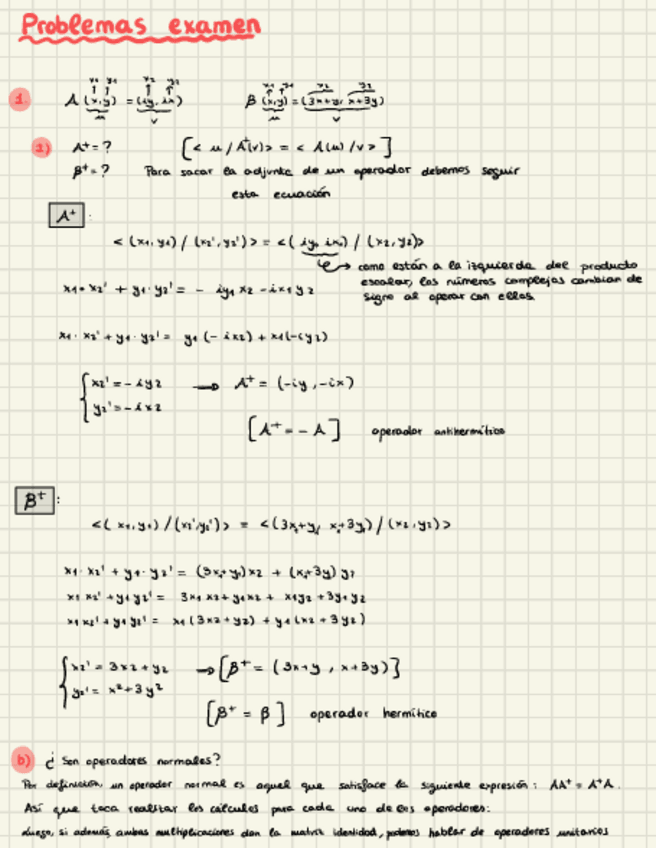 Problemas examen
x1 y1 x2 y2 x1 y1 x2 y2
1 A (x,y) = (iy, ix) B (x,y) = (3x+y, x+3y)
u v u v
a) A+ = ? [< u / A+(v)> = < A(u) / v >]
B+ = ? Para sacar la adjunta de un operador debemos seguir
esta ecuación
A+ :
< (x1, y1) / (x2', y2')> = <( iy1, ix1) / (x2, y2)>
como están a la izquierda del producto
escalar, los números complejos cambian de
signo al operar con ellos.
x1 · x2' + y1 · y2' = - iy1 x2 - ix1 y2
x1 · x2' + y1 · y2' = y1 (- ix2) + x1(-iy2)
x2' = - iy2 → A+ = (-iy, -ix)
y2' = - ix2
[A+ = - A] operador antihermítico
B+ :
<( x1, y1) / (x2', y2')> = <(3x1+y1, x1+3y1) / (x2, y2)>
x1 · x2' + y1 · y2' = (3x1+y1) x2 + (x1+3y1) y2
x1 x2' + y1 y2' = 3x1 x2 + y1x2 + x1y2 + 3y1y2
x1 x2' + y1 y2' = x1 (3x2 + y2) + y1 (x2 + 3y2)
x2' = 3x2 + y2 → [B+ = (3x+y, x+3y)]
y2' = x2 + 3y2
[B+ = B] operador hermítico
b) ¿ Son operadores normales?
Por definición, un operador normal es aquel que satisface la siguiente expresión: AA+ = A+A.
Así que toca realizar los cálculos para cada uno de los operadores:
Luego, si además ambas multiplicaciones dan la matriz identidad, podemos hablar de operadores unitarios